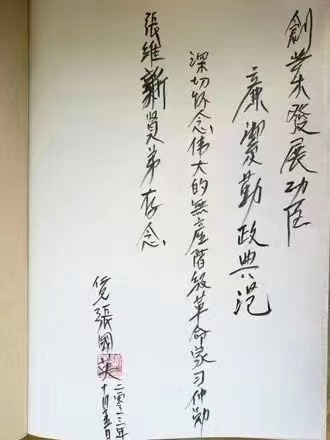 創業發展功臣
廉潔勤政典范
深切怀念伟大的無産階級革命家习仲勋
張維新賢弟存念
張國英
二零一三年
十月十五日